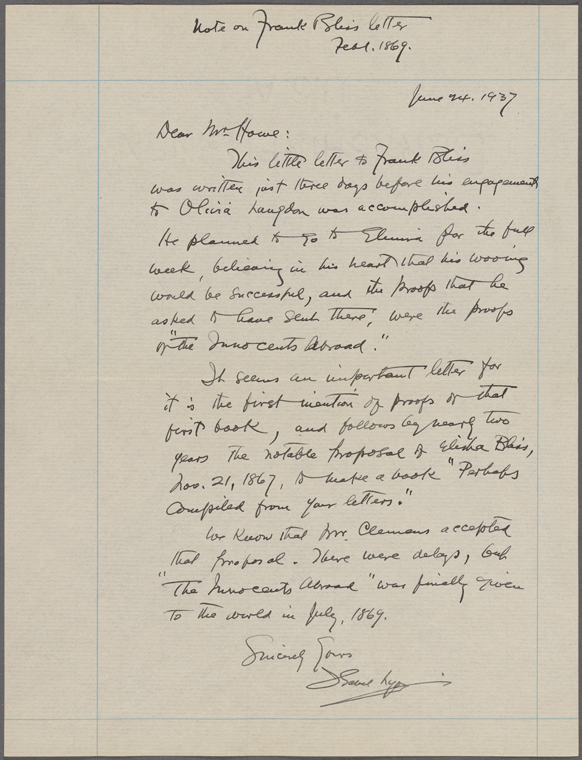 Note on Frank Bliss letter
Feb 1. 1869.
June 24. 1937
Dear Mr. Howe:
This little letter to Frank Bliss
was written just three days before his engagement
to Olivia Langdon was accomplished.
He planned to go to Elmira for the full
week, believing in his heart that his wooing
would be successful, and the proofs that he
asked to have sent there, were the proofs
of "the Innocents Abroad."
It seems an important letter for
it is the first mention of proofs of that
first book, and follows by nearly two
years the notable proposal of Elisha Bliss,
Nov. 21, 1867, to make a book "Perhaps
compiled from your letters."
We know that Mr. Clemens accepted
that proposal. There were delays, but
"The Innocents Abroad" was finally given
to the world in July, 1869.
Sincerely Yours
Isabel Lyon